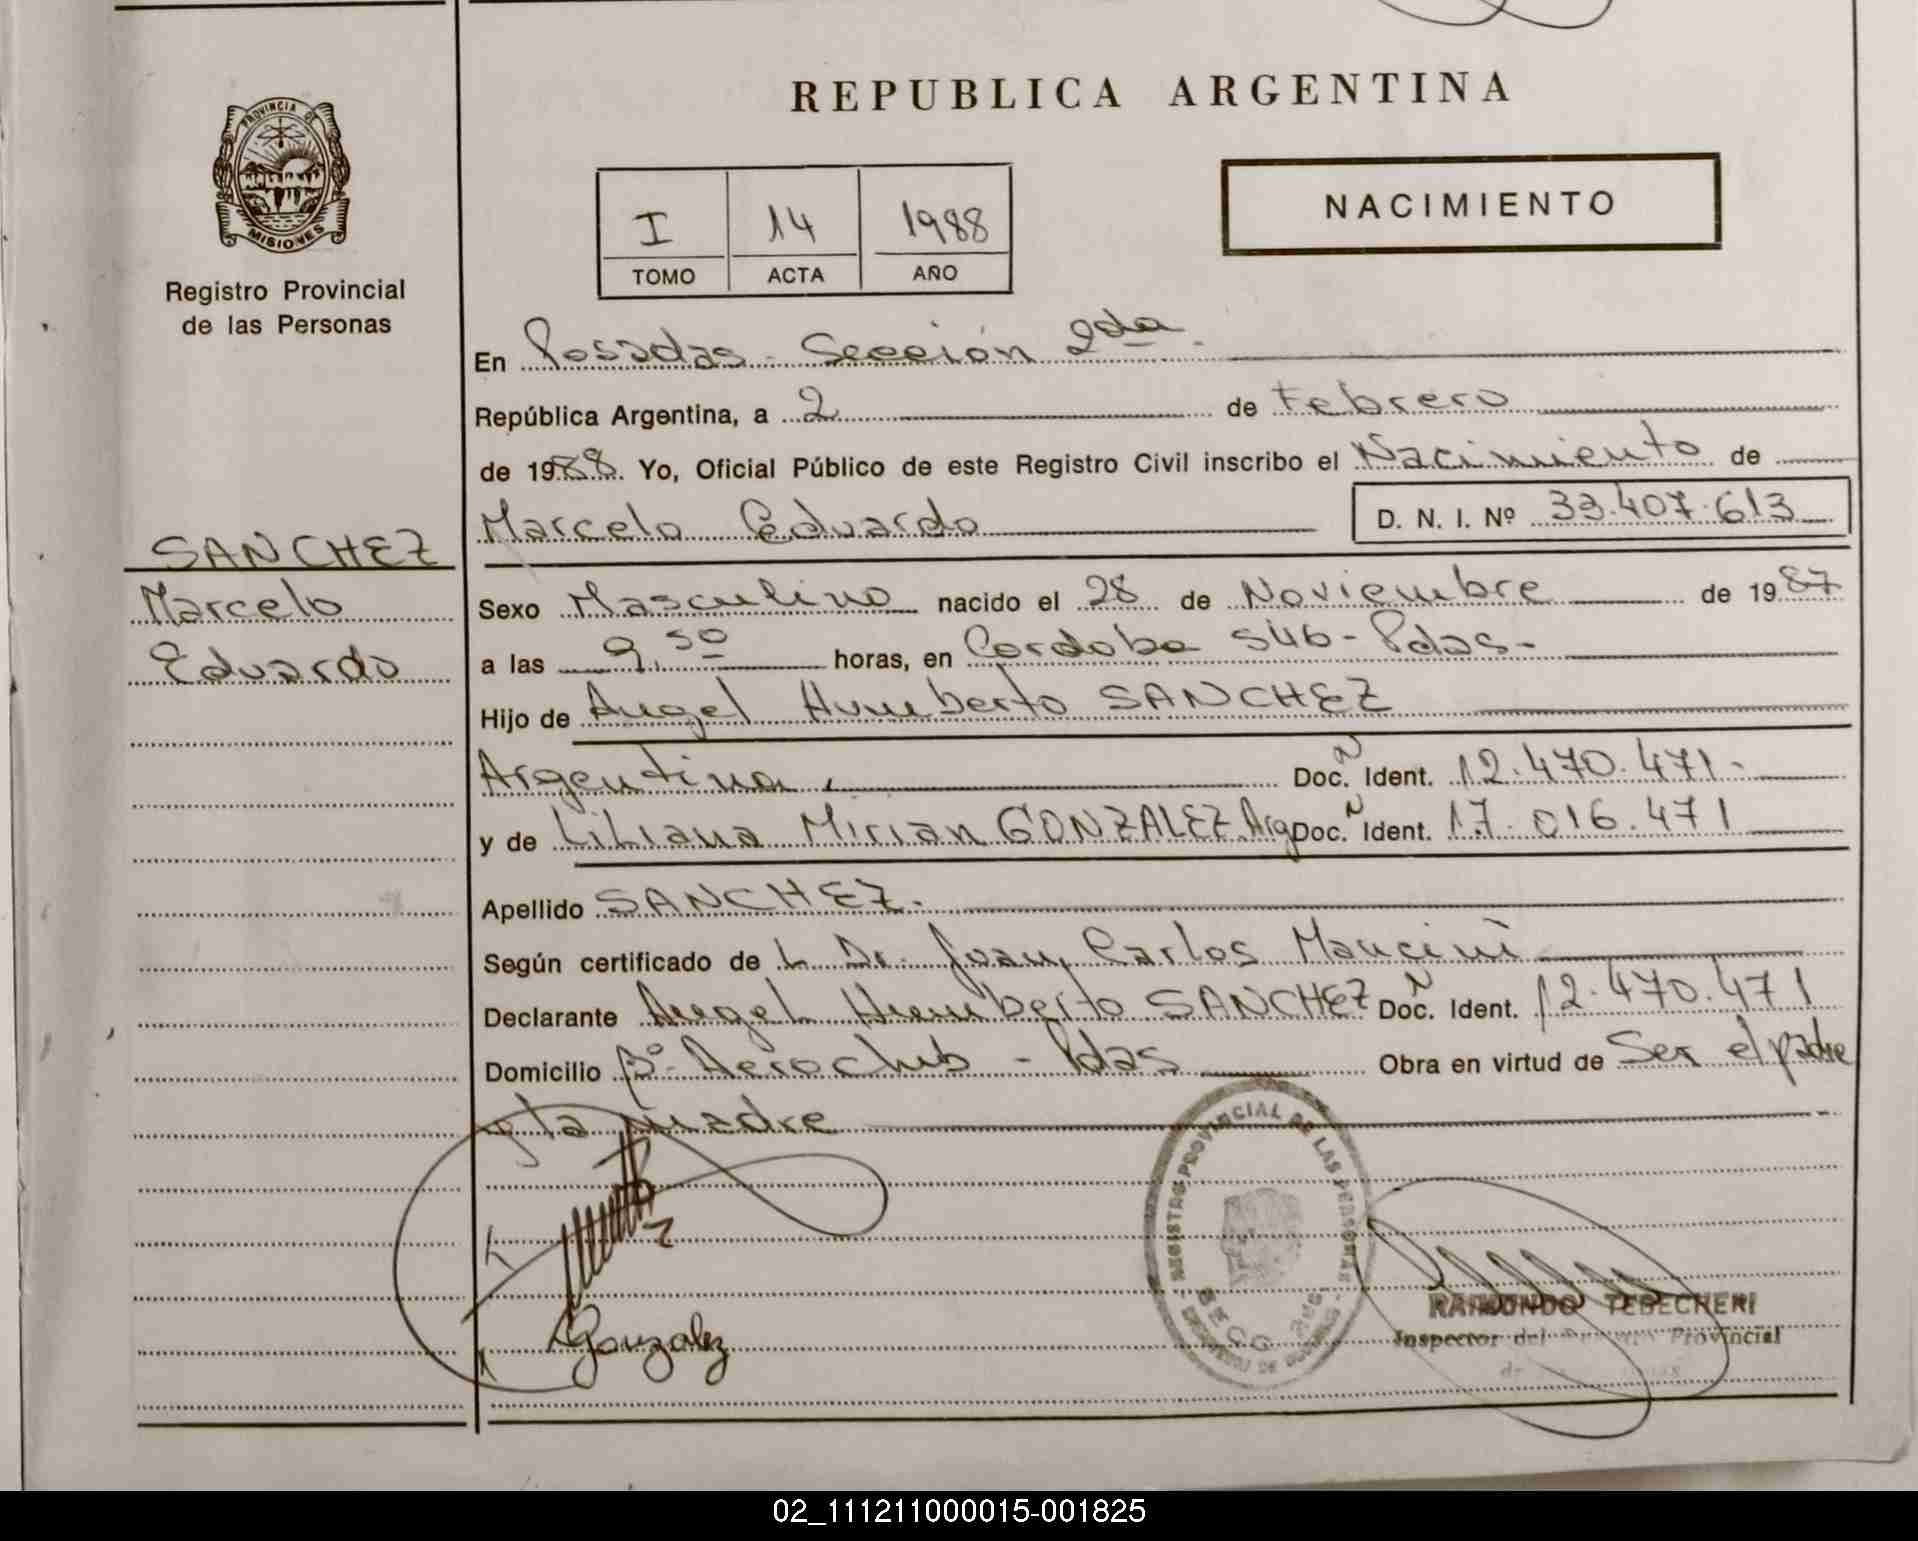 REPUBLICA ARGENTINA
PROVINCIA DE
MISIONES
Registro Provincial
de las Personas
I 14 1988
TOMO ACTA AÑO
NACIMIENTO
En Posadas - Sección 2da.
República Argentina, a 2 de Febrero
de 1988. Yo, Oficial Público de este Registro Civil inscribo el Nacimiento de
Marcelo Eduardo D. N. I. Nº 33.407.613
SANCHEZ
Marcelo
Eduardo
Sexo Masculino nacido el 28 de Noviembre de 1987
a las 9.50 horas, en Cordoba 546 - Pdas -
Hijo de Angel Humberto SANCHEZ
Argentina, Doc. N Ident. 12.470.471 -
y de Liliana Mirian GONZALEZ Arg Doc. N Ident. 17.016.471
Apellido SANCHEZ.
Según certificado de L Dr. Juan Carlos Mancini
Declarante Angel Humberto SANCHEZ Doc. N Ident. 12.470.471
Domicilio Bº Aeroclub - Pdas Obra en virtud de Ser el padre
y la madre
Gonzalez
REGISTRO PROVINCIAL DE LAS PERSONAS
RAIMUNDO TEBECHERI
Inspector del Provincial
02_111211000015-001825